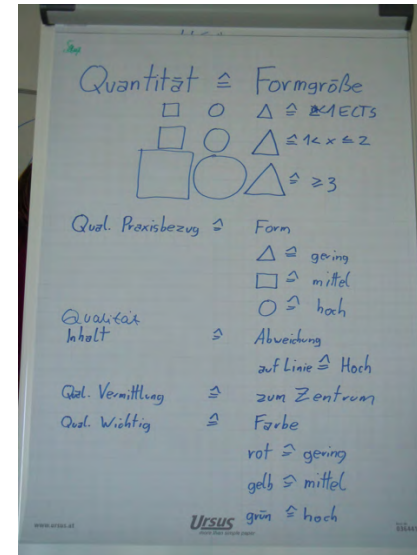 Quantität ≙ Formgröße
□ ○ △ ≙ <1 ECTS
□ ○ △ ≙ 1< x ≤ 2
□ ○ △ ≙ ≥3
Qual. Praxisbezug ≙ Form
△ ≙ gering
□ ≙ mittel
○ ≙ hoch
Qualität
Inhalt ≙ Abweichung
auf Linie ≙ Hoch
Qual. Vermittlung ≙ zum Zentrum
Qual. Wichtig ≙ Farbe
rot ≙ gering
gelb ≙ mittel
grün ≙ hoch
www.ursus.at Ursus
more than simple paper